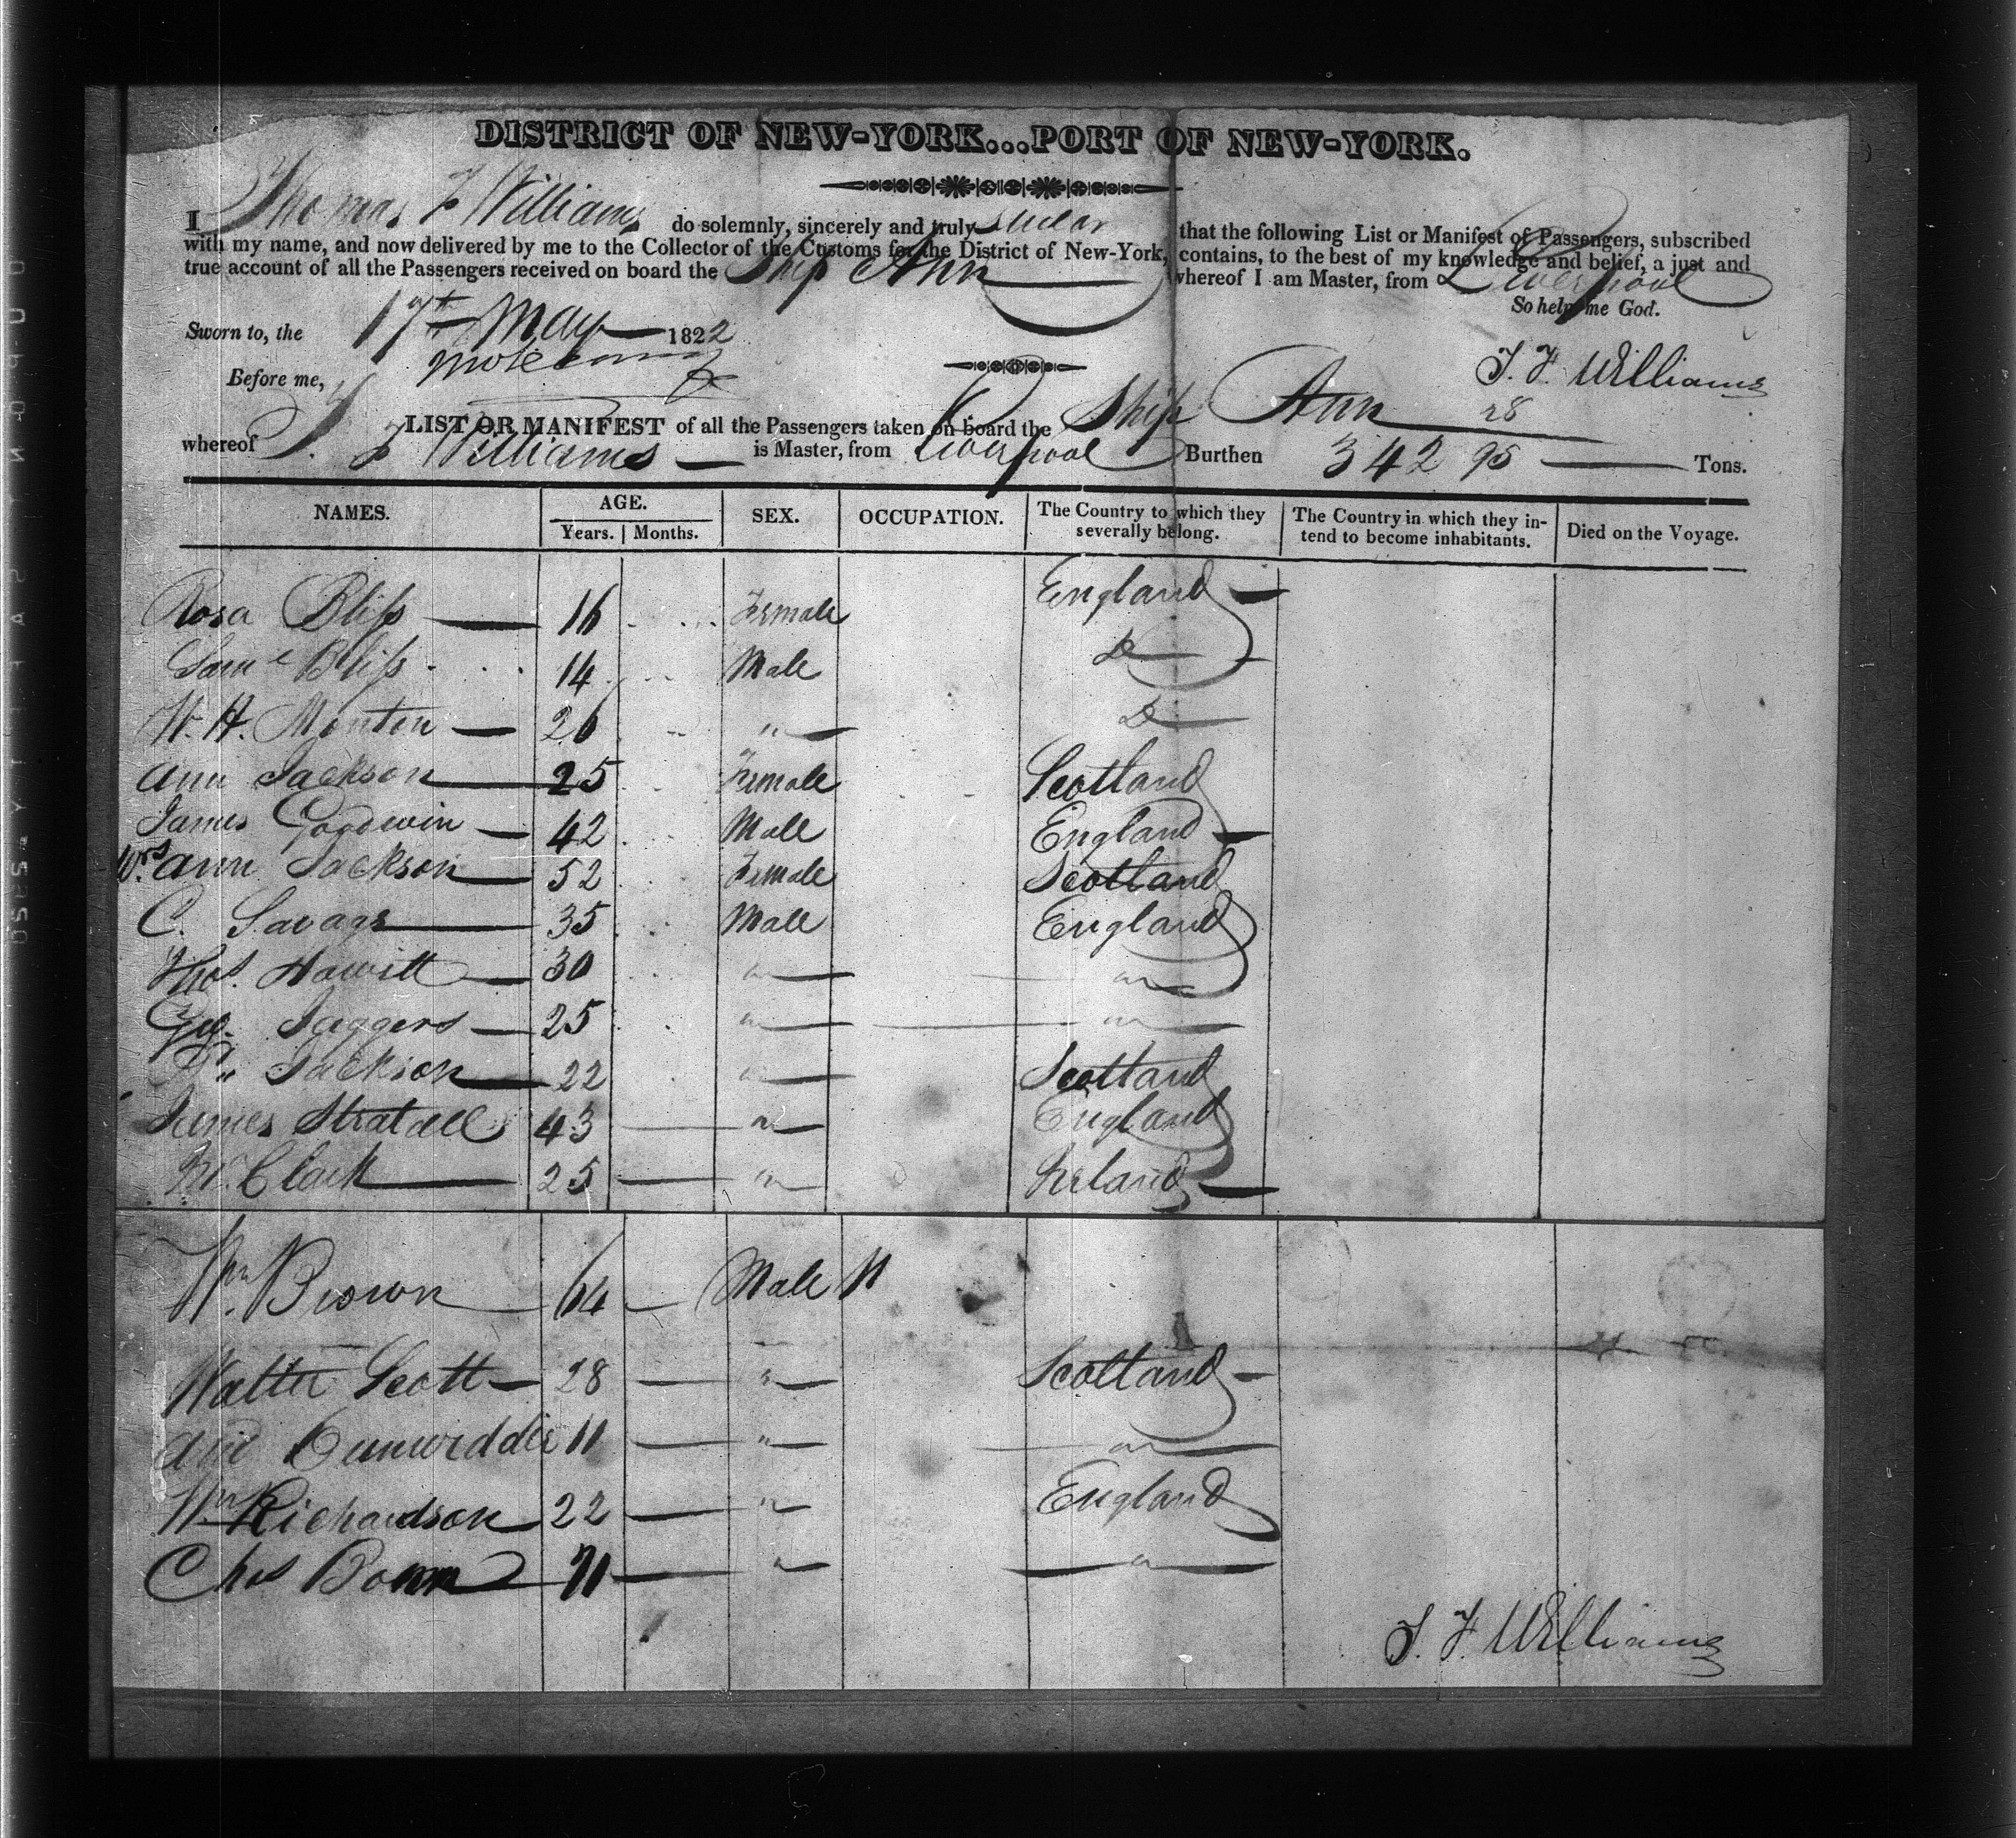 DISTRICT OF NEW-YORK...PORT OF NEW-YORK.
I Thomas F Williams do solemnly, sincerely and truly swear that the following List or Manifest of Passengers, subscribed
with my name, and now delivered by me to the Collector of the Customs for the District of New-York, contains, to the best of my knowledge and belief, a just and
true account of all the Passengers received on board the Ship Ann whereof I am Master, from Liverpool
So help me God.
Sworn to, the 17th May 1822
Before me,
T. F. Williams
LIST OR MANIFEST of all the Passengers taken on board the Ship Ann 28
whereof T. F Williams is Master, from Liverpool Burthen 342 95 Tons.
NAMES. AGE. SEX. OCCUPATION. The Country to which they severally belong. The Country in which they intend to become inhabitants. Died on the Voyage.
Years. Months.
Rosa Bliss 16 Female England
Saml Bliss 14 Male Do
W. H. Monten 26 " Do
Ann Jackson 25 Female Scotland
James Goodwin 42 Male England
Mrs Ann Jackson 52 Female Scotland
C. Savage 35 Male England
Thos. Hawitt 30 " "
Geo. Jaggers 25 " "
" Jackson 22 " Scotland
James 43 " England
Clark 25 " Ireland
Wm Brown 64 Male "
Walter Scott 28 " Scotland
11 " "
Wm Richardson 22 " England
Chas 71 " "
T. F. Williams